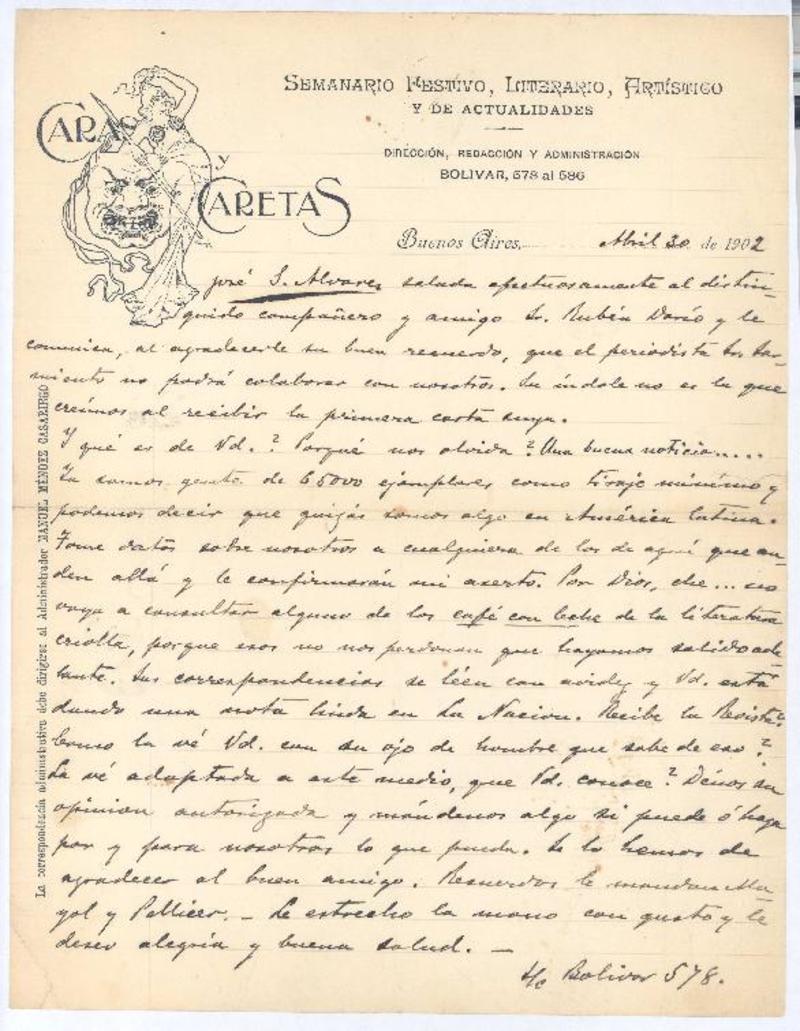 SEMANARIO FESTIVO, LITERARIO, ARTÍSTICO
Y DE ACTUALIDADES
CARAS
Y
CARETAS
DIRECCIÓN, REDACCIÓN Y ADMINISTRACIÓN
BOLIVAR, 578 al 586
Buenos Aires, Abril 30 de 1902
José S. Alvarez saluda afectuosamente al distin-
guido compañero y amigo Sr. Rubén Darío y le
comunica, al agradecerle su buen recuerdo, que el periodista Sr. Sar-
miento no podrá colaborar con nosotros. Su índole no es la que
creímos al recibir la primera carta suya.
Y qué es de Vd.? Porqué nos olvida? Una buena noticia.....
Ya somos gente de 65000 ejemplares como tiraje mínimo y
podemos decir que quizás somos algo en América latina.
Tome datos sobre nosotros a cualquiera de los de aquí que an-
den allá y le confirmarán mi aserto. Por Dios, che... no
vaya a consultar alguno de los café con leche de la literatura
criolla, porque esos no nos perdonan que hayamos salido ade
lante. Sus correspondencias se léen con avidez y Vd. está
dando una nota linda en La Nacion. Recibe la Revista?
Como la vé Vd. con su ojo de hombre que sabe de eso?
La vé adaptada a este medio, que Vd. conoce? Dénos su
opinion autorizada y mándenos algo si puede ó haga
por y para nosotros lo que pueda. Se lo hemos de
agradecer al buen amigo. Recuerdos le mandan Ma
yol y Pellicer. – Le estrecho la mano con gusto y le
deseo alegría y buena salud. –
S/c Bolivar 578.
La correspondencia administrativa debe dirigirse al Administrador MANUEL MÉNDEZ CASARIEGO